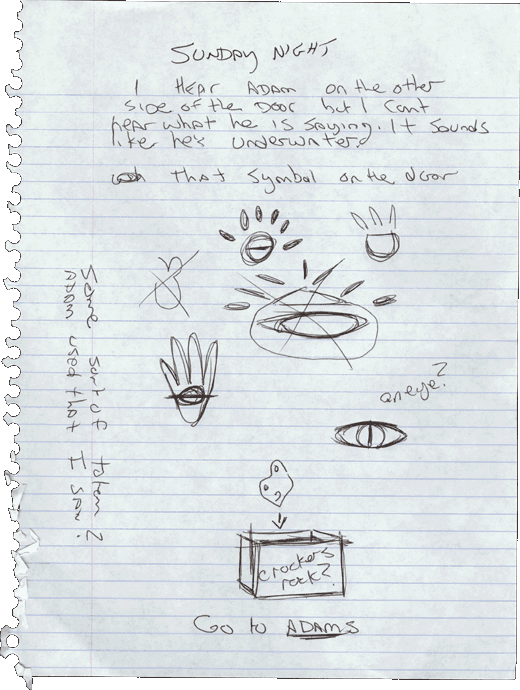 SUNDAY NIGHT
I HEAR ADAM on the other
side of the Door but I Cant
hear what he is saying. It sounds
like he's underwater.
that symbol on the door
an eye?
Some sort of totem?
ADAM used that I saw?
crackers
rock?
Go to ADAMS